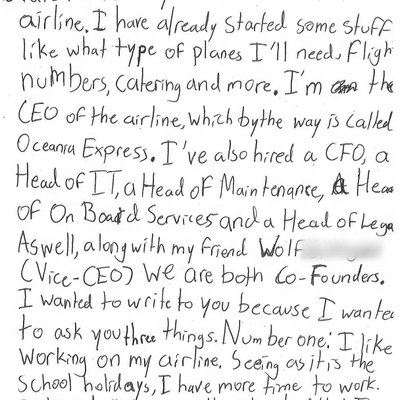 airline. I have already started some stuff
like what type of planes I'll need, fligh
numbers, catering and more. I'm the
CEO of the airline, which by the way is called
Oceania Express. I've also hired a CFO, a
Head of IT, a Head of Maintenance, A Hea
of On Board Services and a Head of Lega
Aswell, along with my friend Wolf
(Vice-CEO) We are both Co-Founders.
I wanted to write to you because I wanted
to ask you three things. Number one: I like
working on my airline. Seeing as it is the
school holidays, I have more time to work.